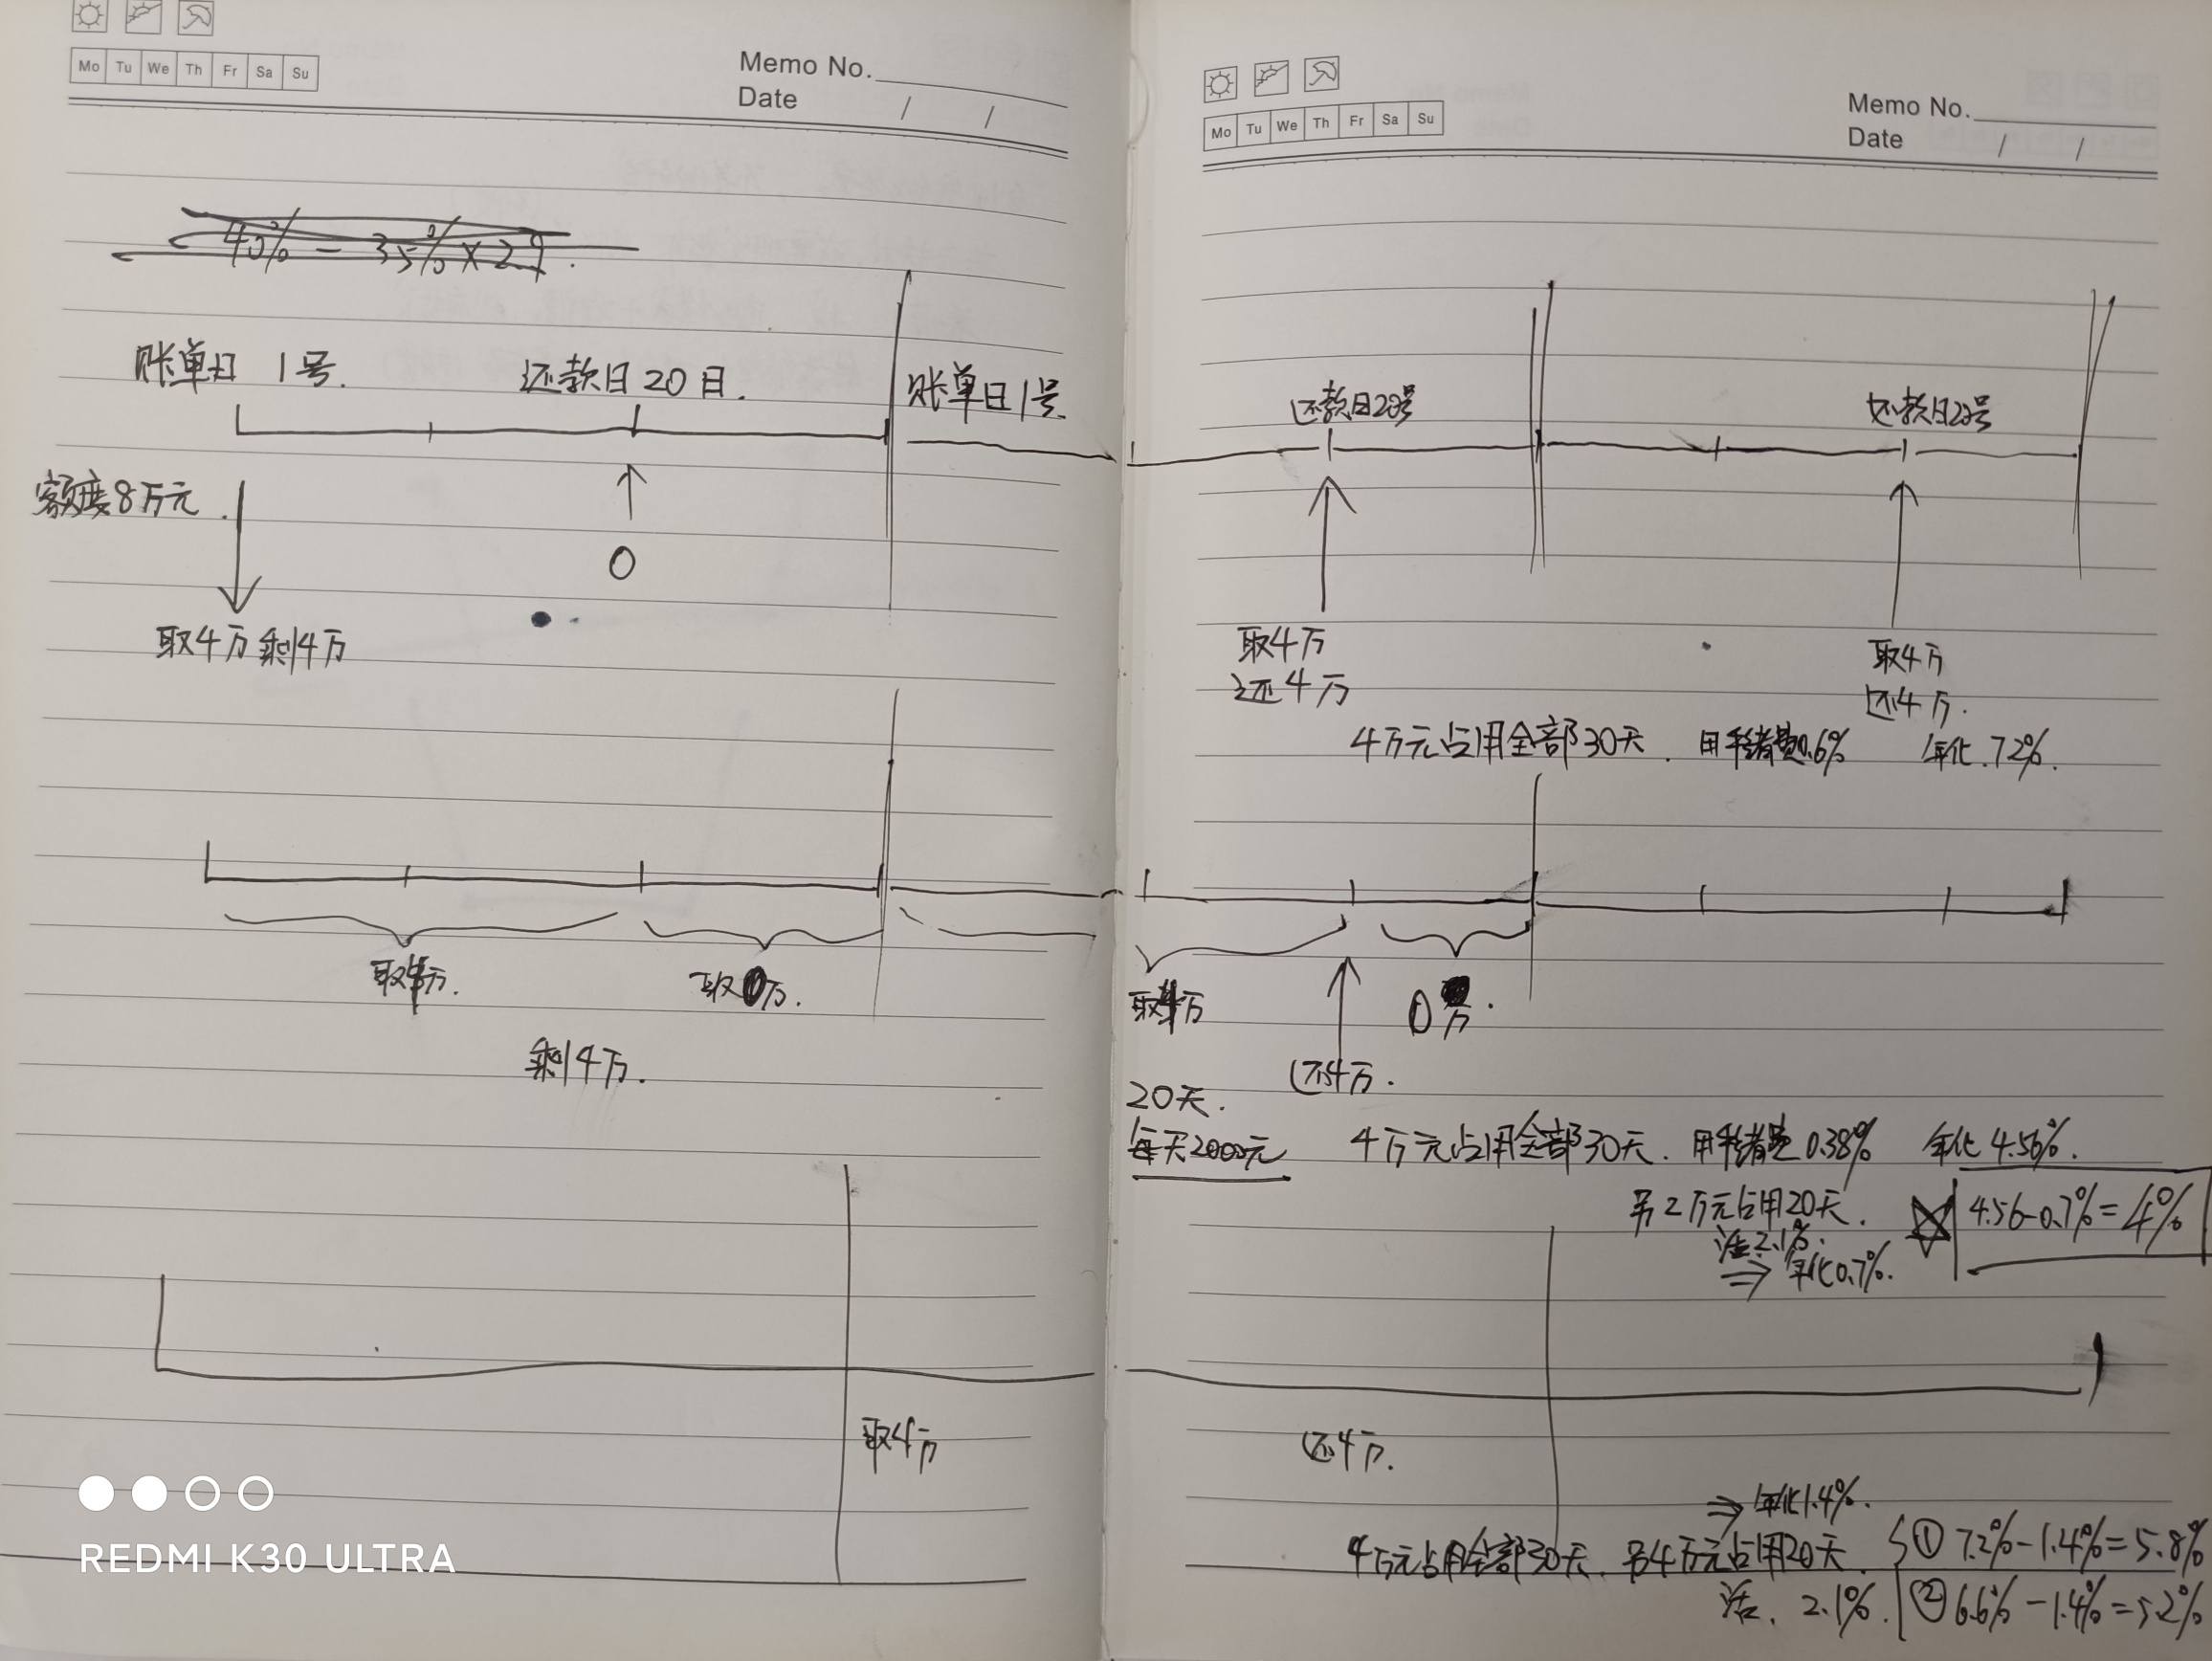 Mo Tu We Th Fr Sa Su
Memo No.
Date / /
40% - 35% × 2.9.
账单日 1号.
还款日20日.
账单日1号.
额度8万元.
0
取4万剩4万
取4万.
取0万.
剩4万.
取4万
REDMI K30 ULTRA
Mo Tu We Th Fr Sa Su
Memo No.
Date / /
还款日20号
还款日20号
取4万
还4万
取4万
还4万.
4万元占用全部30天. 用手续费0.6% 年化.7.2%.
取4万
0万.
还4万.
20天.
每天2000元
4万元占用全部30天. 用手续费0.38% 年化4.56%.
另2万元占用20天.
活2.1%.
⇒ 年化0.7%.
4.56-0.7%=4%
还4万.
⇒年化1.4%.
4万元占用全部30天. 另4万元占用20天
活. 2.1%.
① 7.2%-1.4%=5.8%
② 6.6%-1.4%=5.2%